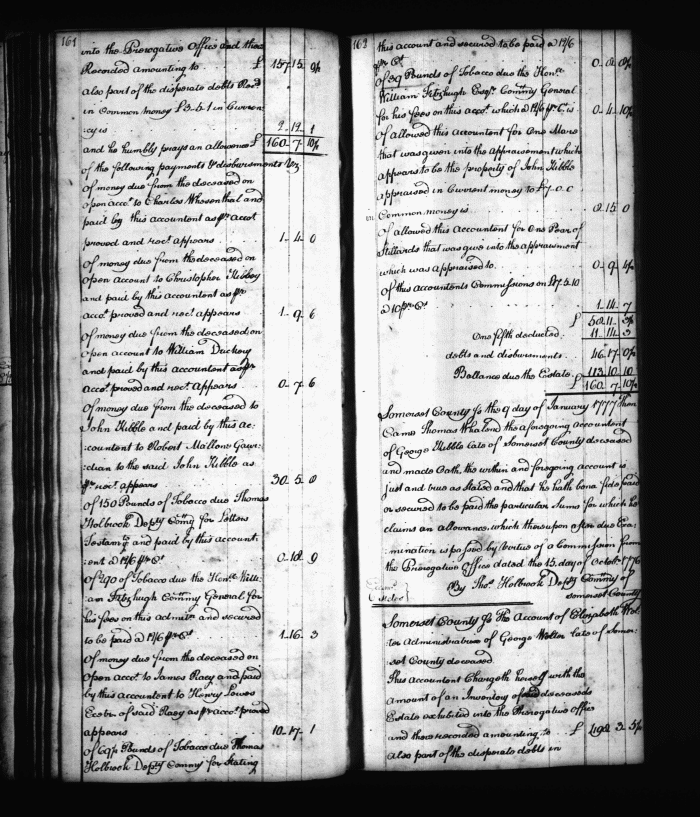 161
into the Prerogative Office and there
Recorded amounting to £ 157-15-9½
also part of the disperate debts Recd
in Common money £3-5-1 in Curren-
cy is 2-12-1
and he humbly prays an allowance £ 160-7-10½
of the following payments & disbursments Viz
Of money due from the deceased on
open accot to Charles Whosenthal and
paid by this accountant as pr accot
proved and rect appears 1-4-0
Of money due from the deceased on
open account to Christopher Kibbey
and paid by this accountant as pr
accot proved and rect appears 1-9-6
Of money due from the deceased on
open account to William Dickey
and paid by this accountant as pr
accot proved and rect appears 0-7-6
Of money due from the deceased to
John Kibble and paid by this ac-
:countant to Robert Mallone Guar-
:dian to the said John Kibble as
pr rect appears 30-5-0
of 150 Pounds of Tobacco due Thomas
Holbrook Depty Comy for Letters
Testamty and paid by this account:
:ent @12/6 pr Ct 0-18-9
Of 290 of Tobacco due the Honle Willi-
:am Fitzhugh Commy General for
his fees on this admtn and secured
to be paid @12/6 pr Ct 1-16-3
Of money due from the deceased on
open accot to James Racy and paid
by this accountant to Henry Lowes
Execr of said Racy as pr accot proved
appears 10-17-1
of Pounds of Tobacco due Thomas
Holbrook Depty Commy for stating
162
this account and secured to be paid @12/6
pr Ct
of 39 Pounds of Tobacco due the Honle
William Fitzhugh Esqr Commy General
for his fees on this accot which @12/6 pr Ct is 0-4-10½
Of allowed this Accountant for One Mare
that was given into the Appraisment which
appears to be the property of John Kibble
appraised in Current money to £7-0-0
in Common money is
Of allowed this accountant for One Pear of
Stillards that was give into the appraisment
which was appraised to 0-9-4½
Of this accountants Commissions on £17.5.10
@10 pr Ct 1-14-7
£ 58-11-3½
One fifth deducted 11-14-3
debts and disbursments 46-17-0½
Ballance due the Estate 113-10-10
£ 160-7-10½
Somerset County Ss the 9 day of January 1777 Then
Came Thomas the aforegoing Accountant
of George Kibble late of Somerset County deceased
and made Oath, the within and foregoing account is
Just and true as stated and that he hath bona fide paid
or secured to be paid the particular Sums for which he
claims an allowance, which thereupon after due Exa:
:mination is passed by Virtue of a Commission from
the Prerogative Office dated the 15 day of Octobr 1776
By Thos Holbrook Depty Commy of
Somerset County
Somerset County Ss The Account of Elizabeth Wal-
ter Administratrix of George Walter late of Somer:
set County deceased
This Accountant Chargeth herself with the
amount of an Inventory of deceaseds
Estate exhibited into the Prerogative Office
and there recorded amounting to £ 492-3-5½
Also part of the disperate debts in